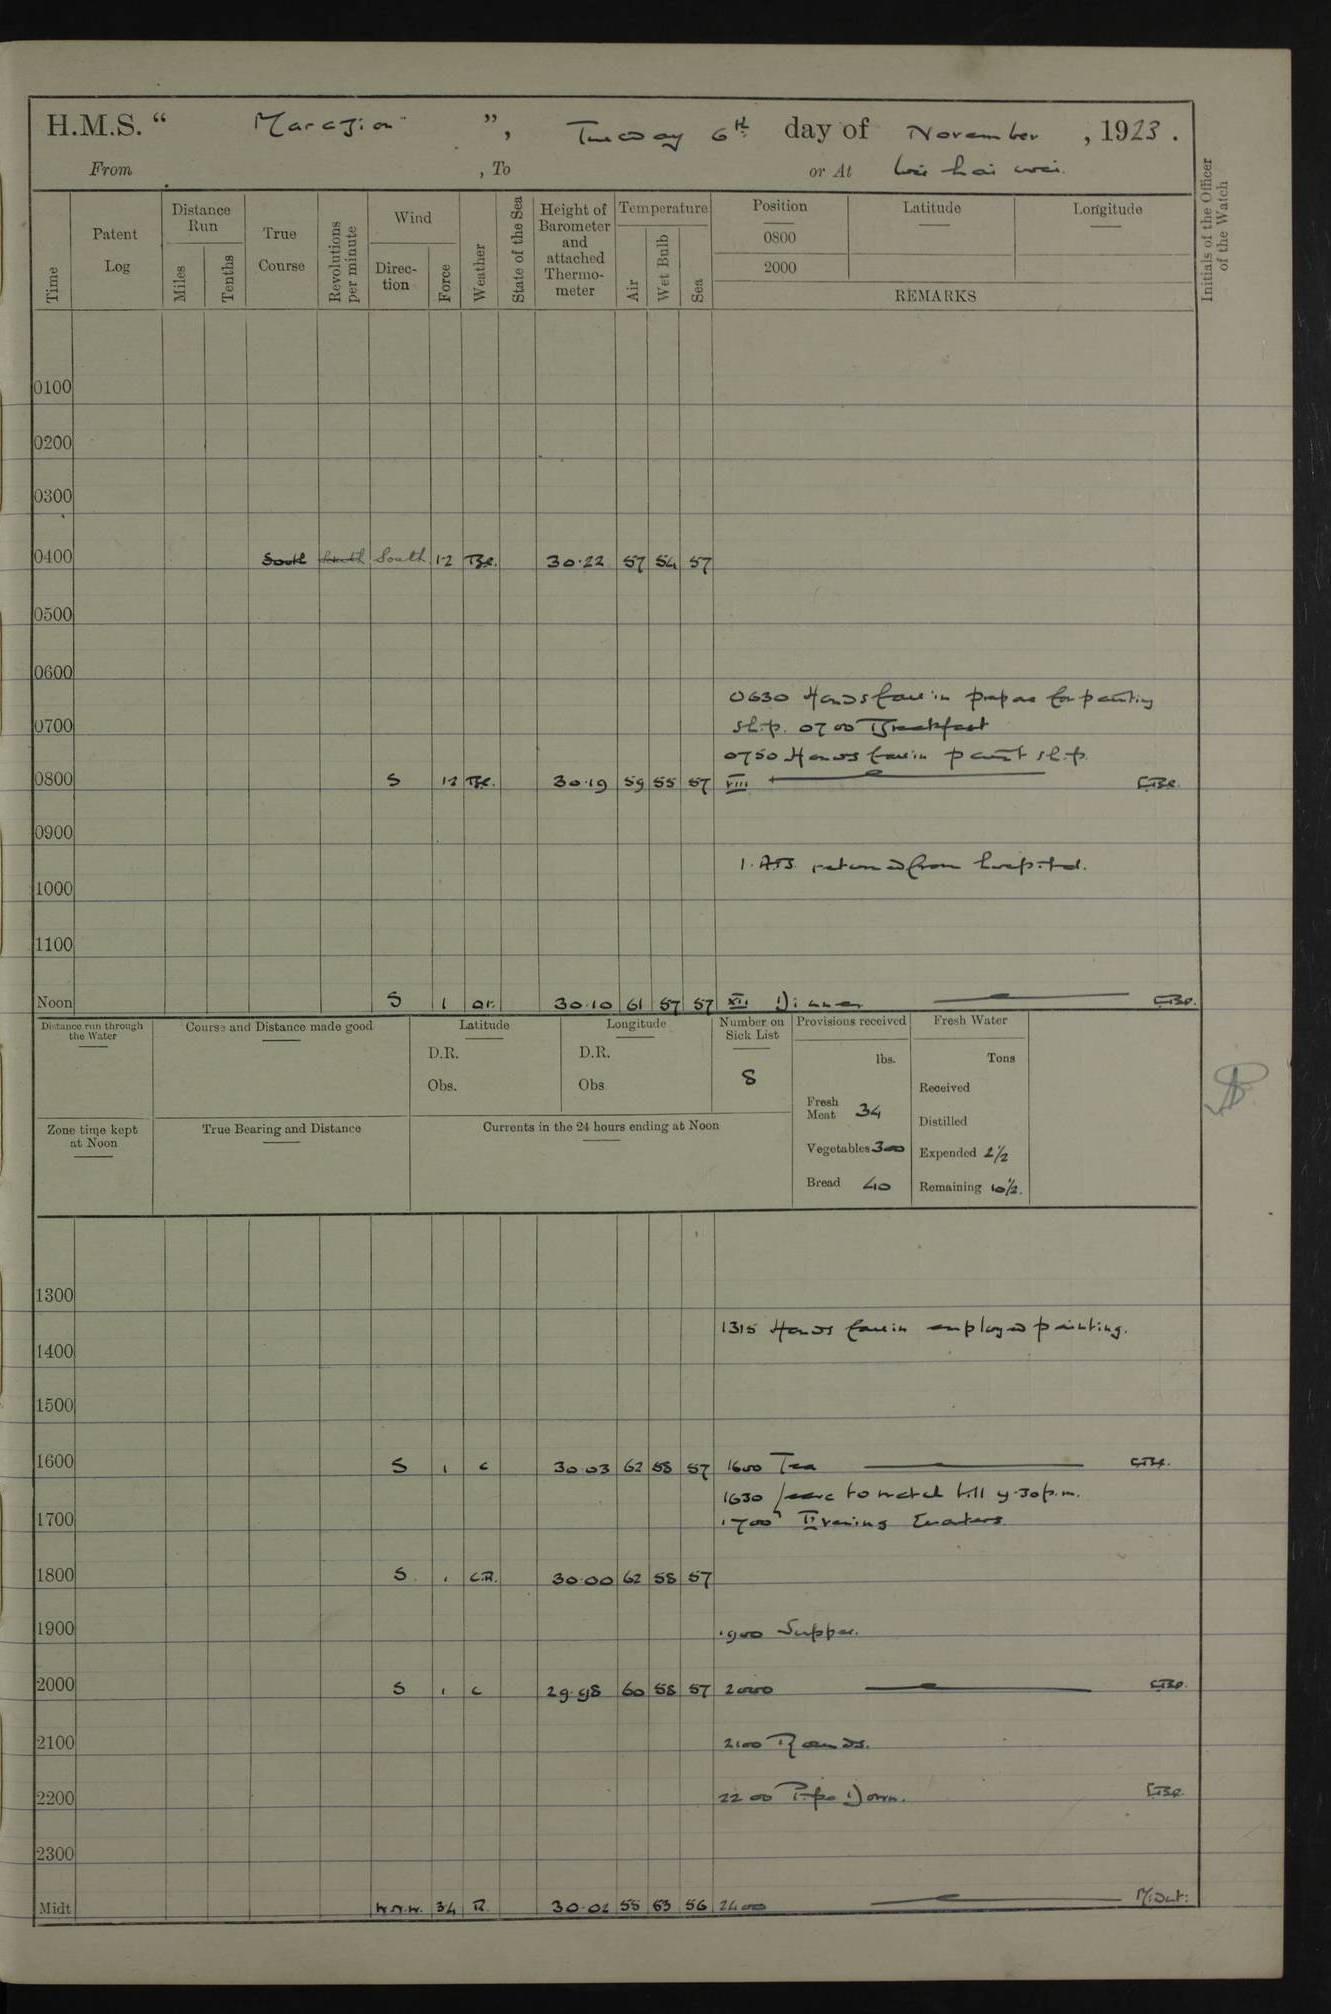 H.M.S. “ Marazion ”, Tuesday 6th day of November , 1923.
From , To or At Wei hai wei.
Time
Patent Log
Distance Run
Miles
Tenths
True Course
Revolutions per minute
Wind
Direction
Force
Weather
State of the Sea
Height of Barometer and attached Thermometer
Temperature
Air
Wet Bulb
Sea
Position
0800
2000
Latitude
Longitude
REMARKS
Initials of the Officer of the Watch
0100
0200
0300
0400 South South South 1-2 30.22 57 54 57
0500
0600
0630 Hands fall in prepare for painting
0700 ship. 0700 Breakfast
0750 Hands fall in paint ship.
0800 S 1-2 30.19 59 55 57 VIII
0900
1. A.B. returned from hospital.
1000
1100
Noon S 1 30.10 61 57 57 XII Dinner
Distance run through the Water
Course and Distance made good
Latitude
D.R.
Obs.
Longitude
D.R.
Obs
Number on Sick List
8
Provisions received
lbs.
Fresh Meat 34
Vegetables 300
Bread 40
Fresh Water
Tons
Received
Distilled
Expended 2½
Remaining 10½.
Zone time kept at Noon
True Bearing and Distance
Currents in the 24 hours ending at Noon
1300
1315 Hands fall in employed painting.
1400
1500
1600 S 1 c 30.03 62 58 57 1600 Tea
1630 leave to watch till 7.30 p.m.
1700 1700 Evening Quarters
1800 S 1 C.R. 30.00 62 58 57
1900 1900 Supper.
2000 S 1 c 29.98 60 58 57 2000
2100 2100 Rounds.
2200 2200 Pipe Down.
2300
Midt W.N.W. 34 R. 30.02 55 53 56 2400